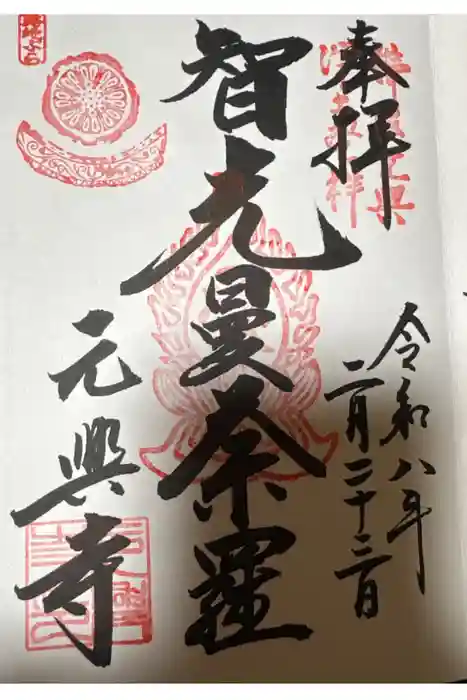 奉拝
令和八年
二月二十三日
智光曼奈羅
元興寺